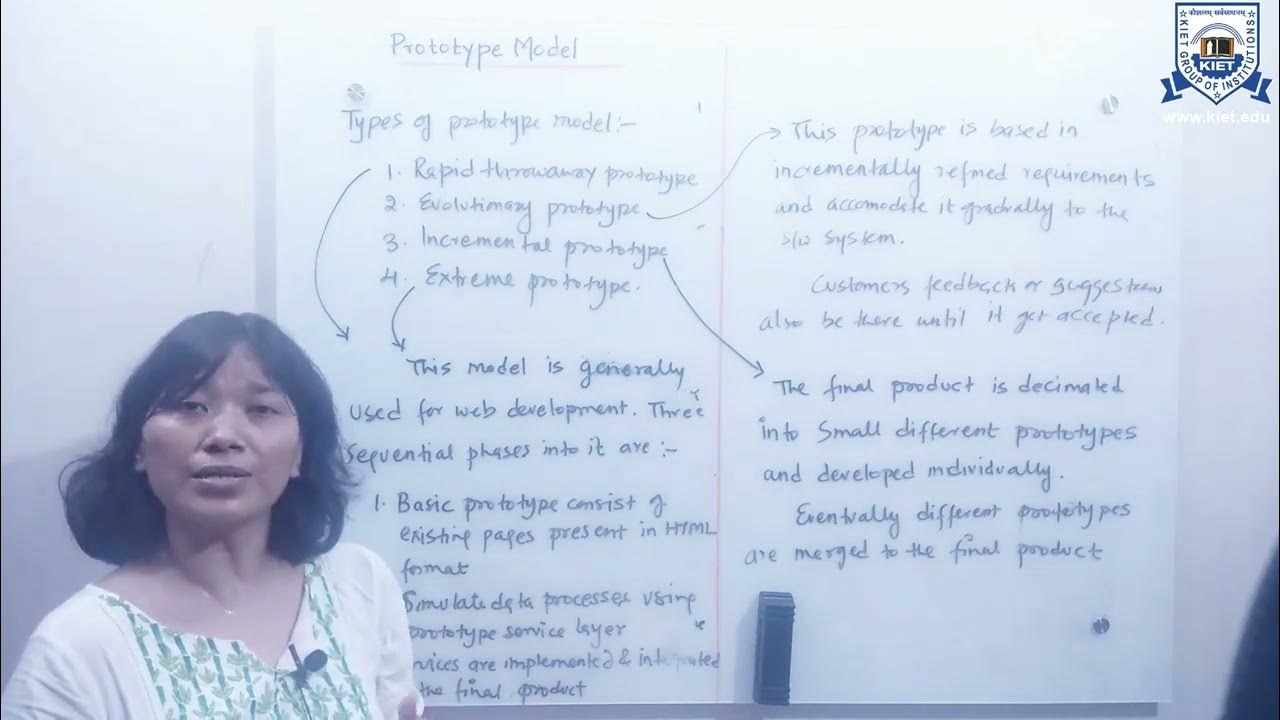 Prototype Model
Types of prototype model:-
1. Rapid throwaway prototype
2. Evolutionary prototype
3. Incremental prototype
4. Extreme prototype.
This model is generally
used for web development. Three
Sequential phases into it are :-
1. Basic prototype consist of
existing pages present in HTML
format
Simulate data processes using
prototype service layer
vices are implemented & integrated
the final product
This prototype is based in
incrementally refined requirements
and accomodate it gradually to the
s/w system.
Customers feedback or suggestions
also be there until it get accepted.
The final product is decimated
into small different prototypes
and developed individually.
Eventually different prototypes
are merged to the final product
कौशलम् सर्वसाधनम्
KIET GROUP OF INSTITUTIONS
KIET
www.kiet.edu